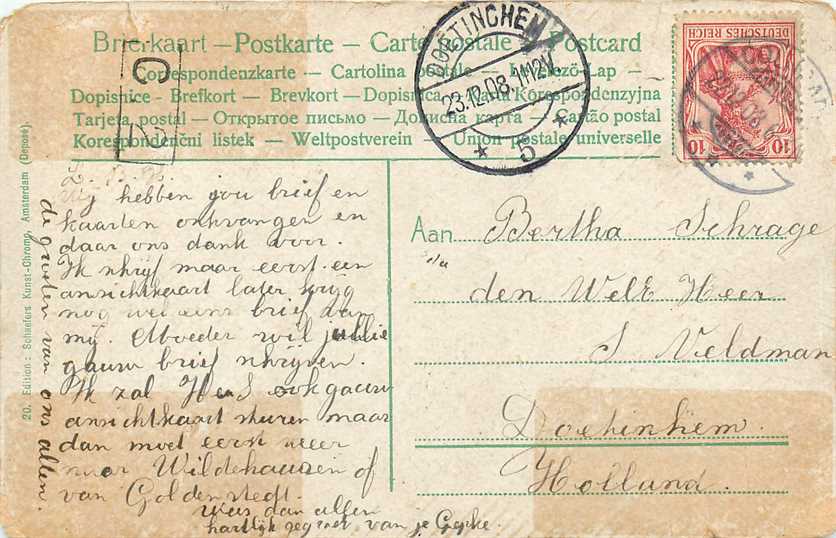 Brierkaart – Postkarte – Carte postale – Postcard
Correspondenzkarte – Cartolina postale – Levelező-Lap –
Dopisnice – Brefkort – Brevkort – Dopisnica – Karta Korespondenzyjna
Tarjeta postal – Открытое письмо – Дописна карта – Cartão postal
Korespondenční listek – Weltpostverein – Union postale universelle
DOETINCHEM
23.12.08. 11-12V
5
DEUTSCHES REICH
10 10
22.12.08
20. Edition: Schaefers Kunst-Chromo, Amsterdam (Deposé)
Wij hebben jou brief en
kaarten ontvangen en
daar ons dank voor.
Ik schrijf maar eerst een
ansichtkaart later krijg
nog wel eens brief van
mij. Moeder wil jullie
gauw brief schrijven.
Ik zal H en S ook gauw
ansichtkaart sturen maar
dan moet eerst weer
naar Wildehausen of
van Goldenstedt.
Wees dan allen
hartlijk gegroet van je
de groeten van ons allen.
Aan Bertha Schrage
den Welt Heer
J Veldman
Doetinhem.
Holland.